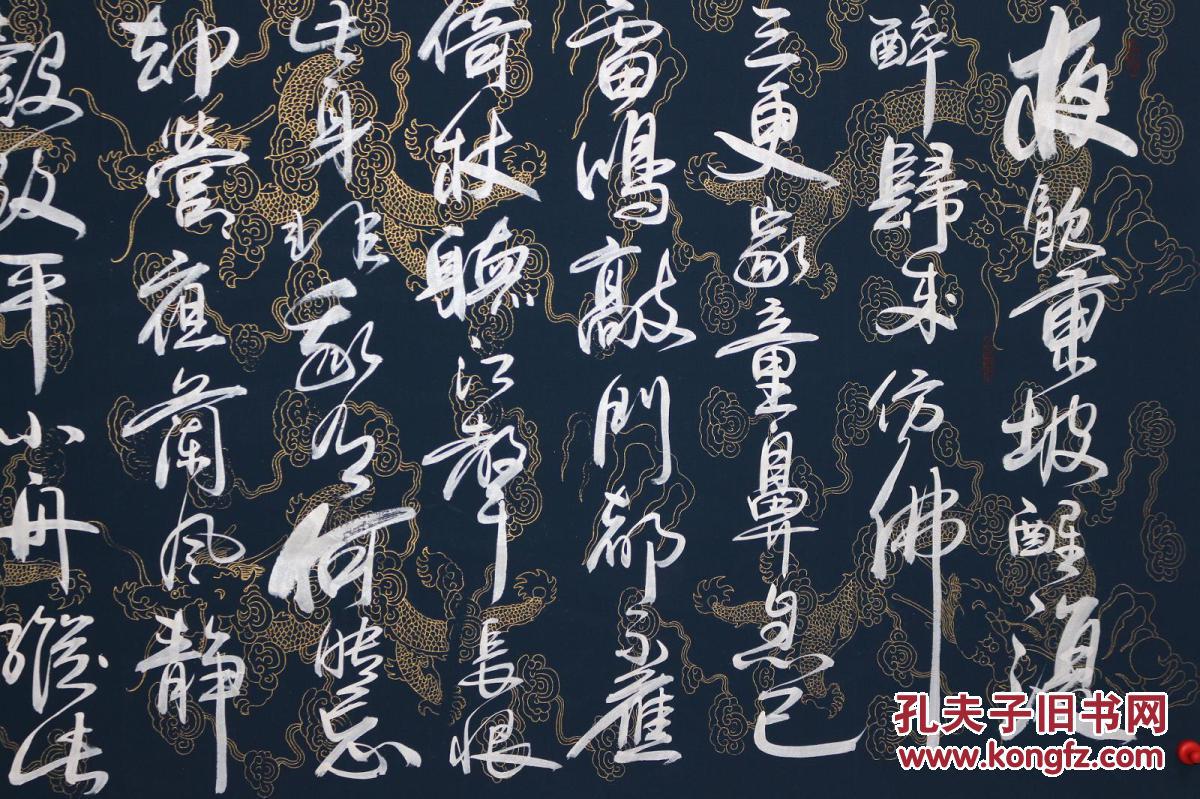 夜飲東坡醒復
醉歸来仿佛
三更家童鼻息已
雷鳴敲門都不應
倚杖聽江聲長恨
此身非我有何時忘
却營夜闌風静
縠紋平小舟從此
孔夫子旧书网
www.kongfz.com